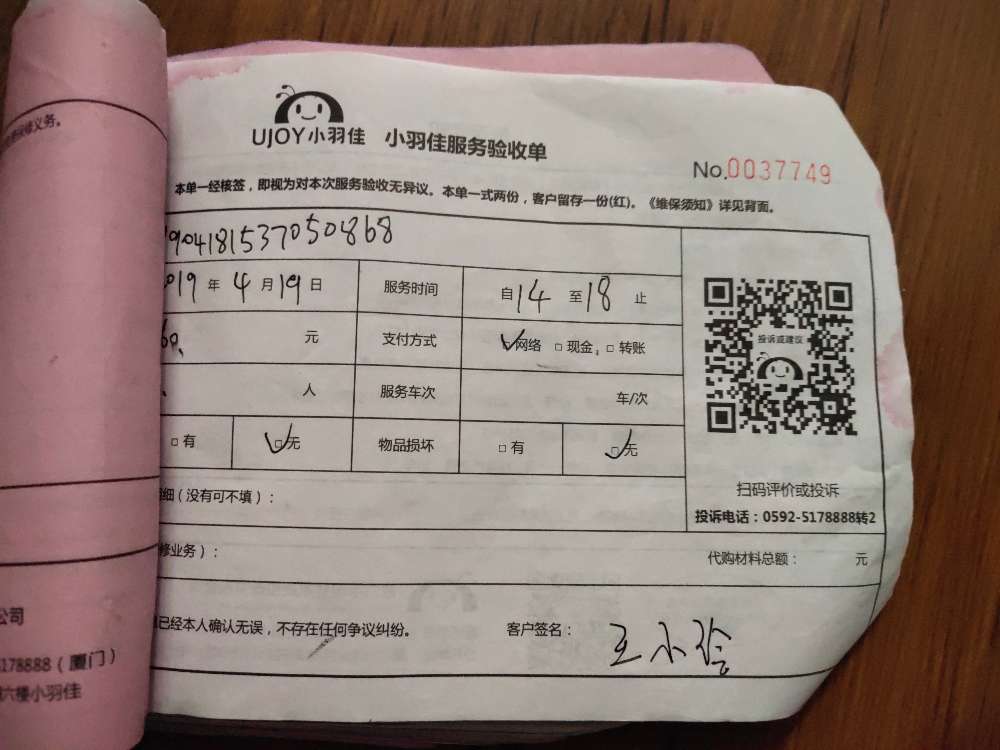 保修义务。
UJOY小羽佳 小羽佳服务验收单
No.0037749
本单一经核签，即视为对本次服务验收无异议。本单一式两份，客户留存一份(红)。《维保须知》详见背面。
1904181537050868
2019 年 4 月 19 日 服务时间 自 14 至 18 止
60. 元 支付方式 ☑网络 □现金, □转账
人 服务车次 车/次
投诉或建议
□有 ☑无 物品损坏 □有 ☑无
扫码评价或投诉
细（没有可不填）：
投诉电话：0592-5178888转2
修业务）： 代购材料总额： 元
已经本人确认无误，不存在任何争议纠纷。 客户签名： 王小
公司
5178888（厦门）
六楼小羽佳